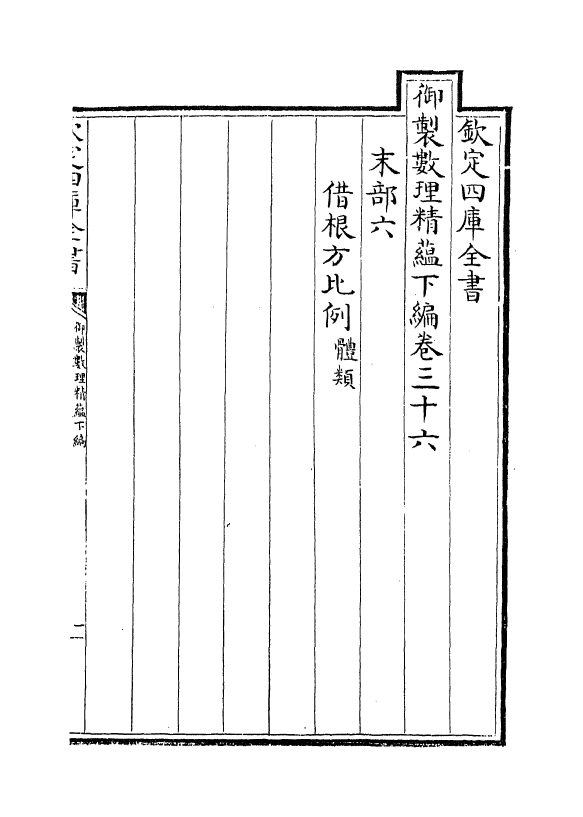 欽定四庫全書
御製數理精蘊下編卷三十六
末部六
借根方比例體類
欽定四庫全書
御製數理精蘊下編
二